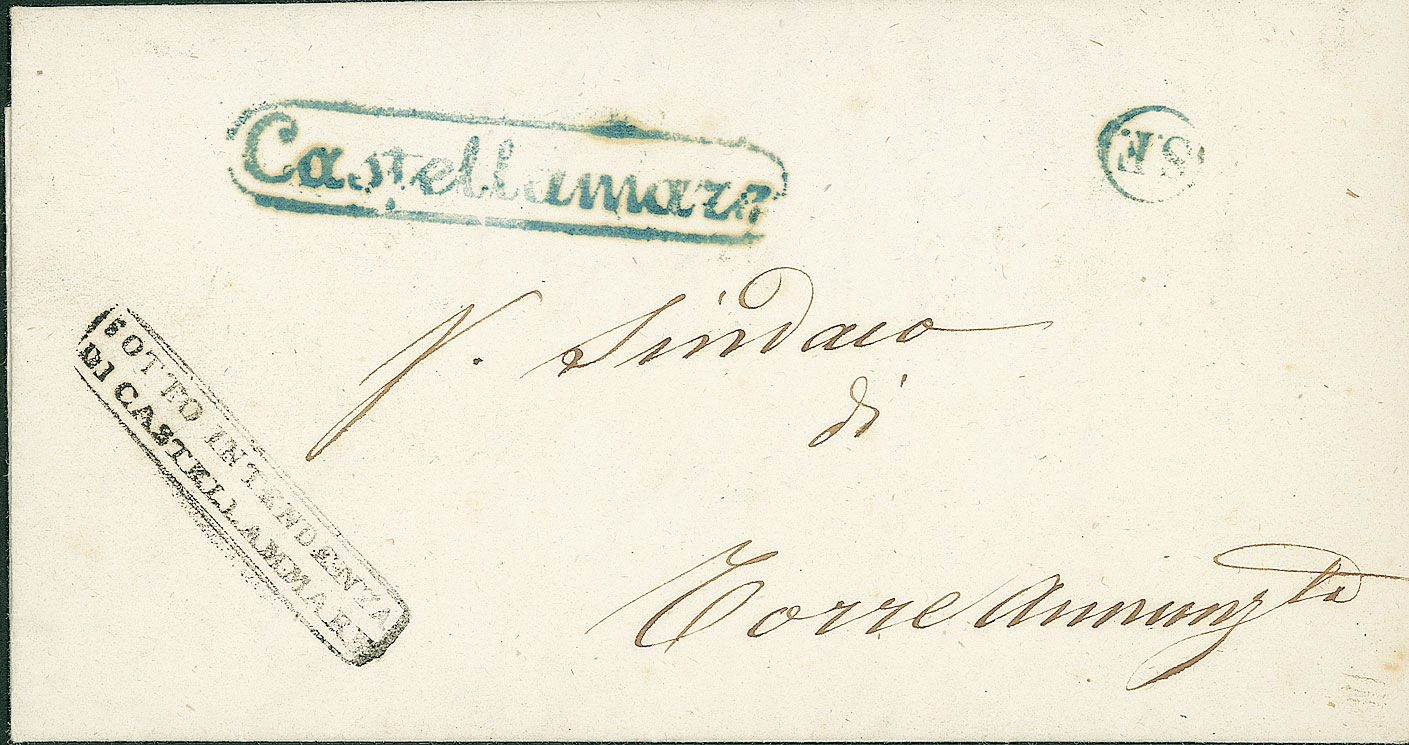 Castellamare
S.F.
SOTTO INTENDENZA
DI CASTELLAMMARE
Sindaco
di
Torre Annunzta